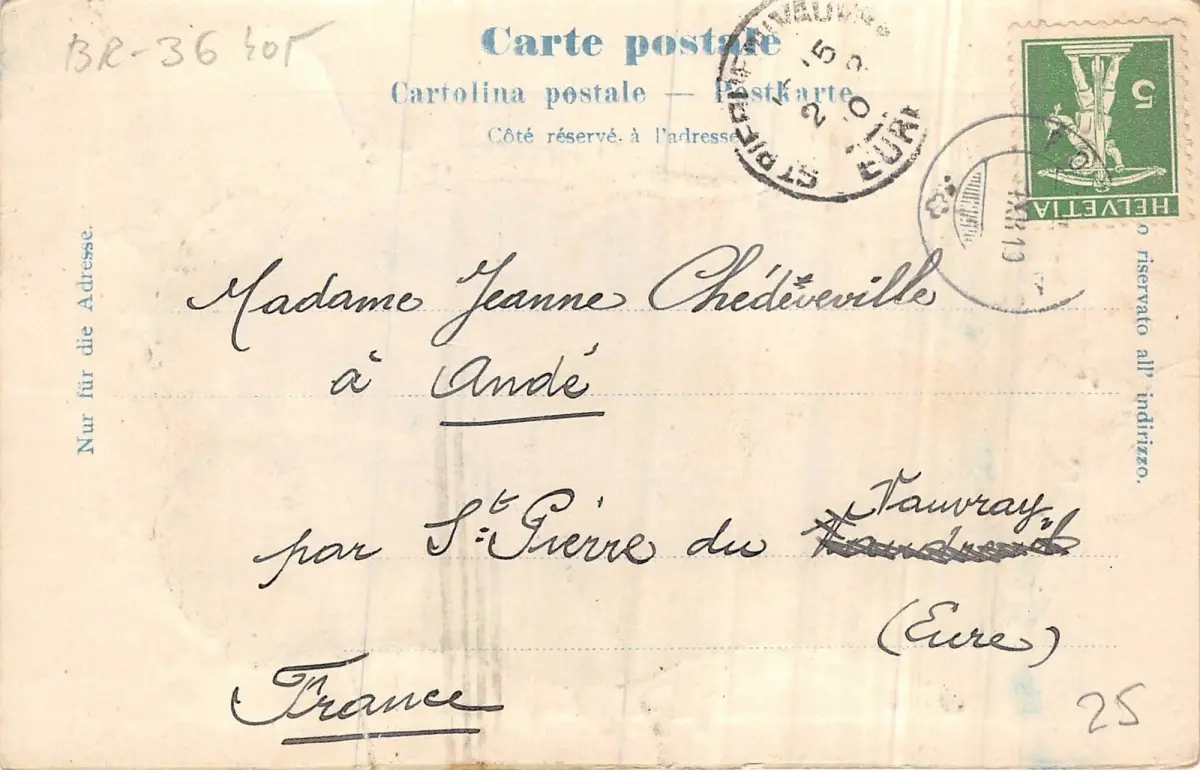 BR-36 405
Carte postale
Cartolina postale — Postkarte
Côté réservé à l'adresse
ST PIERRE DU VAUVRAY
15
2
EURE
5
HELVETIA
Nur für die Adresse.
riservato all' indirizzo.
Madame Jeanne Chédeveville
à Andé
Vauvray
par St Pierre du
(Eure)
France
25